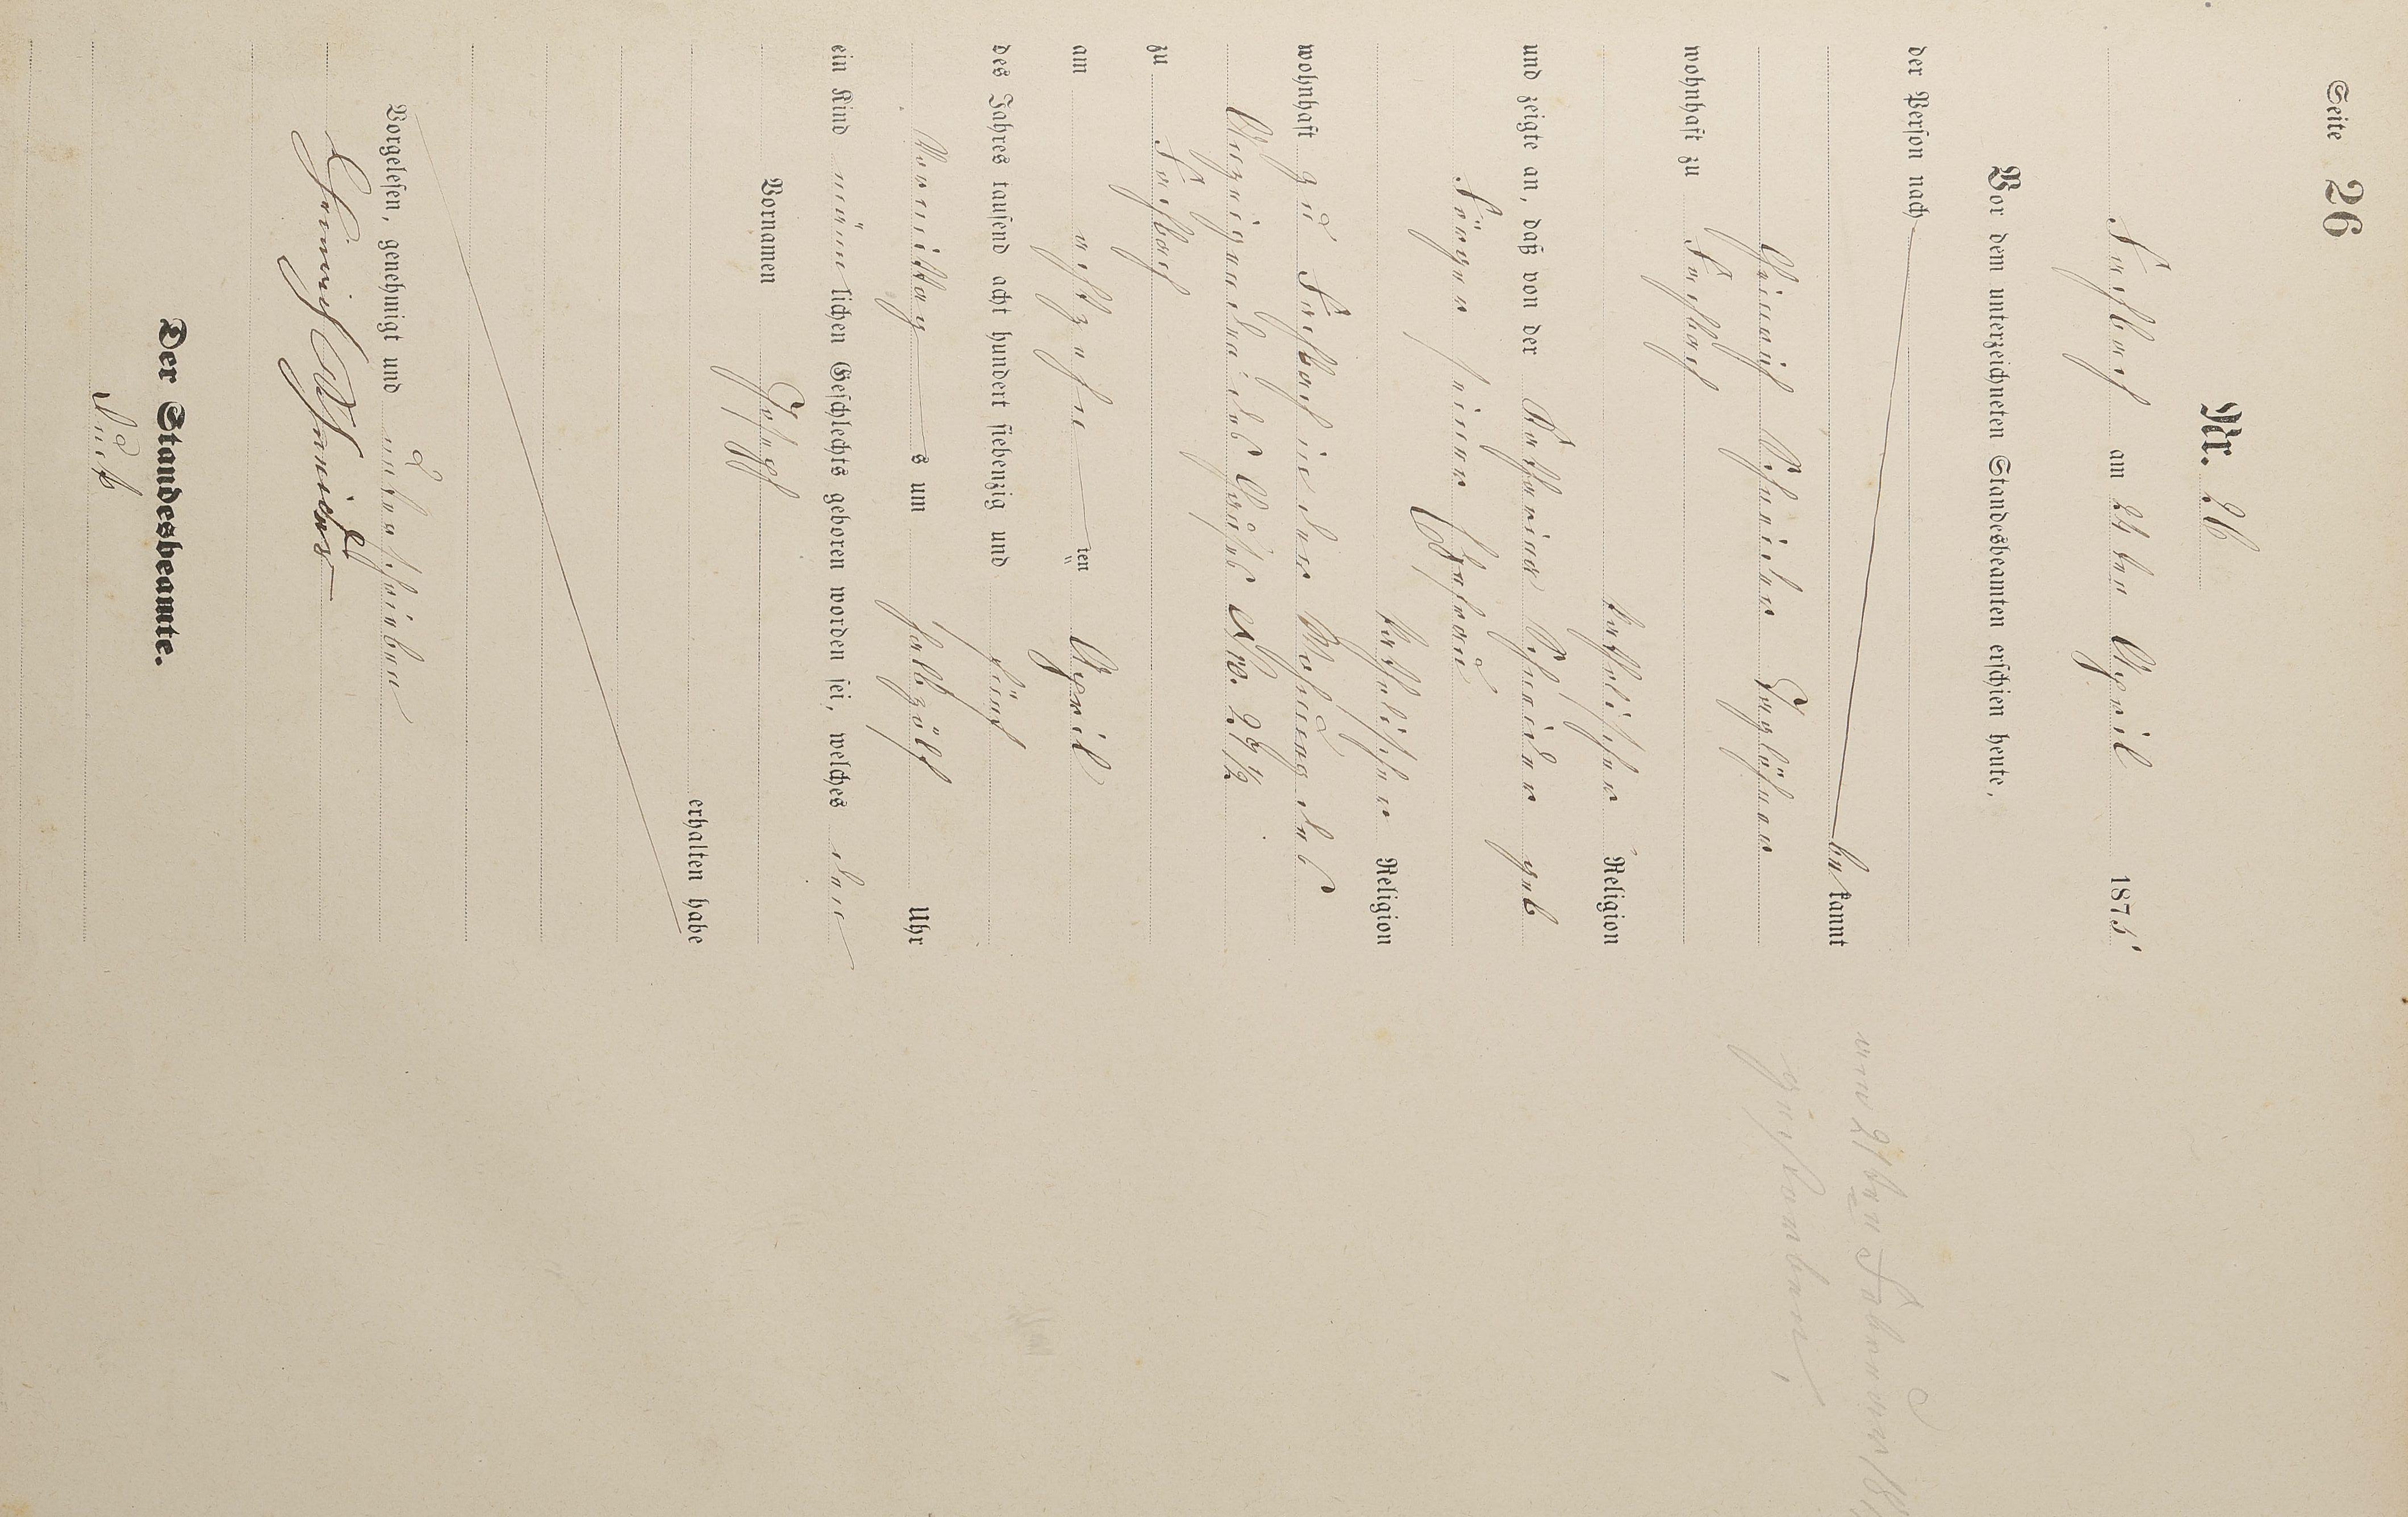 Seite 26
Nr. 26
am 24ten April 1875
Vor dem unterzeichneten Standesbeamten erschien heute,
der Person nach
bekannt
Heinrich Schneider Taglöhner
wohnhaft zu
katholischer Religion
und zeigte an, daß von der Katharina Schneider geb
seiner Ehefrau
katholischer Religion
wohnhaft zu in der Wohnung des
Anzeigenden des Hauses No. 25 1/2
zu
am achtzehn ten April
des Jahres tausend acht hundert siebenzig und fünf
Vormittag s um halbzölf Uhr
ein Kind männlichen Geschlechts geboren worden sei, welches den
Vornamen Joseph
erhalten habe
Vorgelesen, genehmigt und unterschrieben
Heinrich Schneider
Der Standesbeamte.
gestorben,